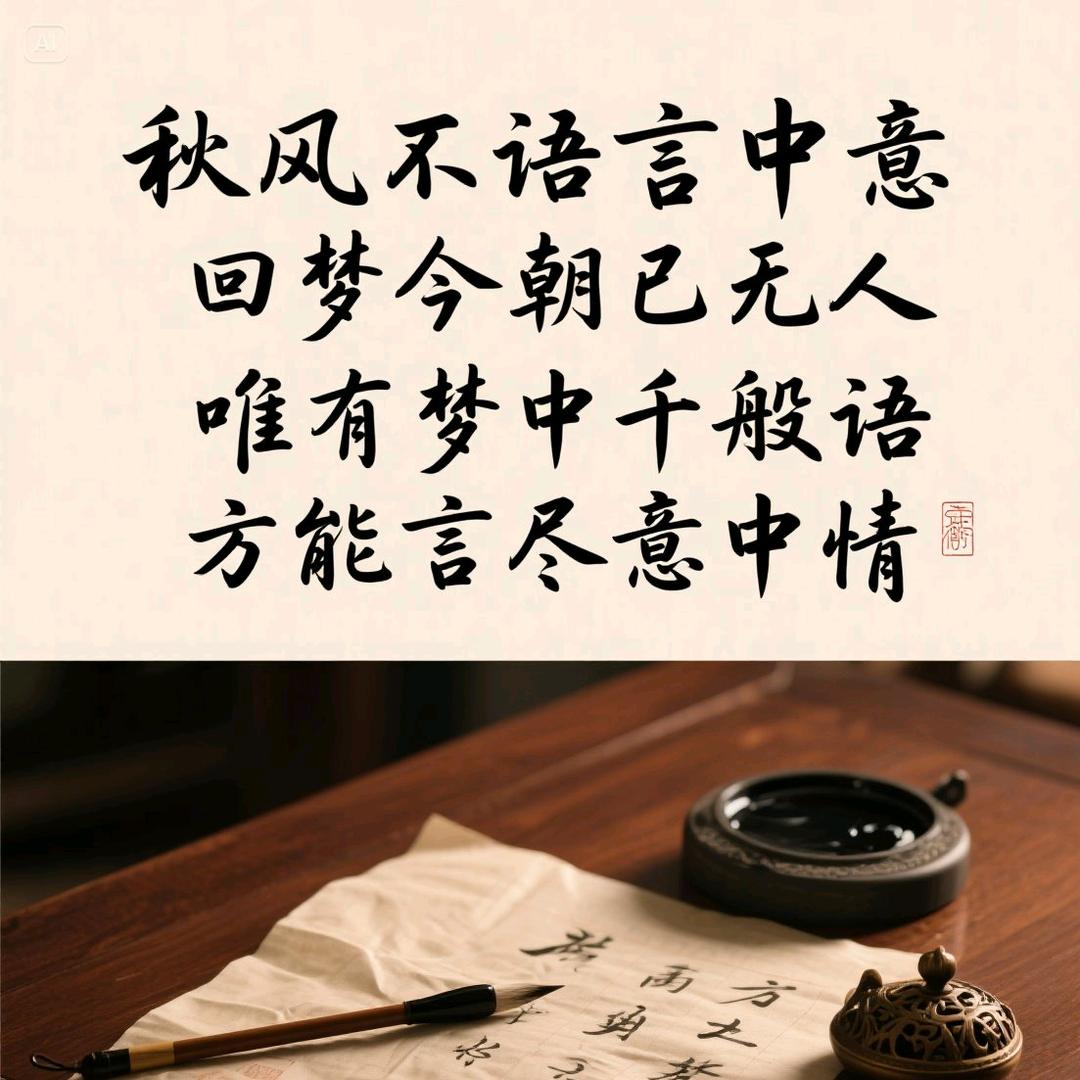 AI
秋风不语言中意
回梦今朝已无人
唯有梦中千般语
方能言尽意中情